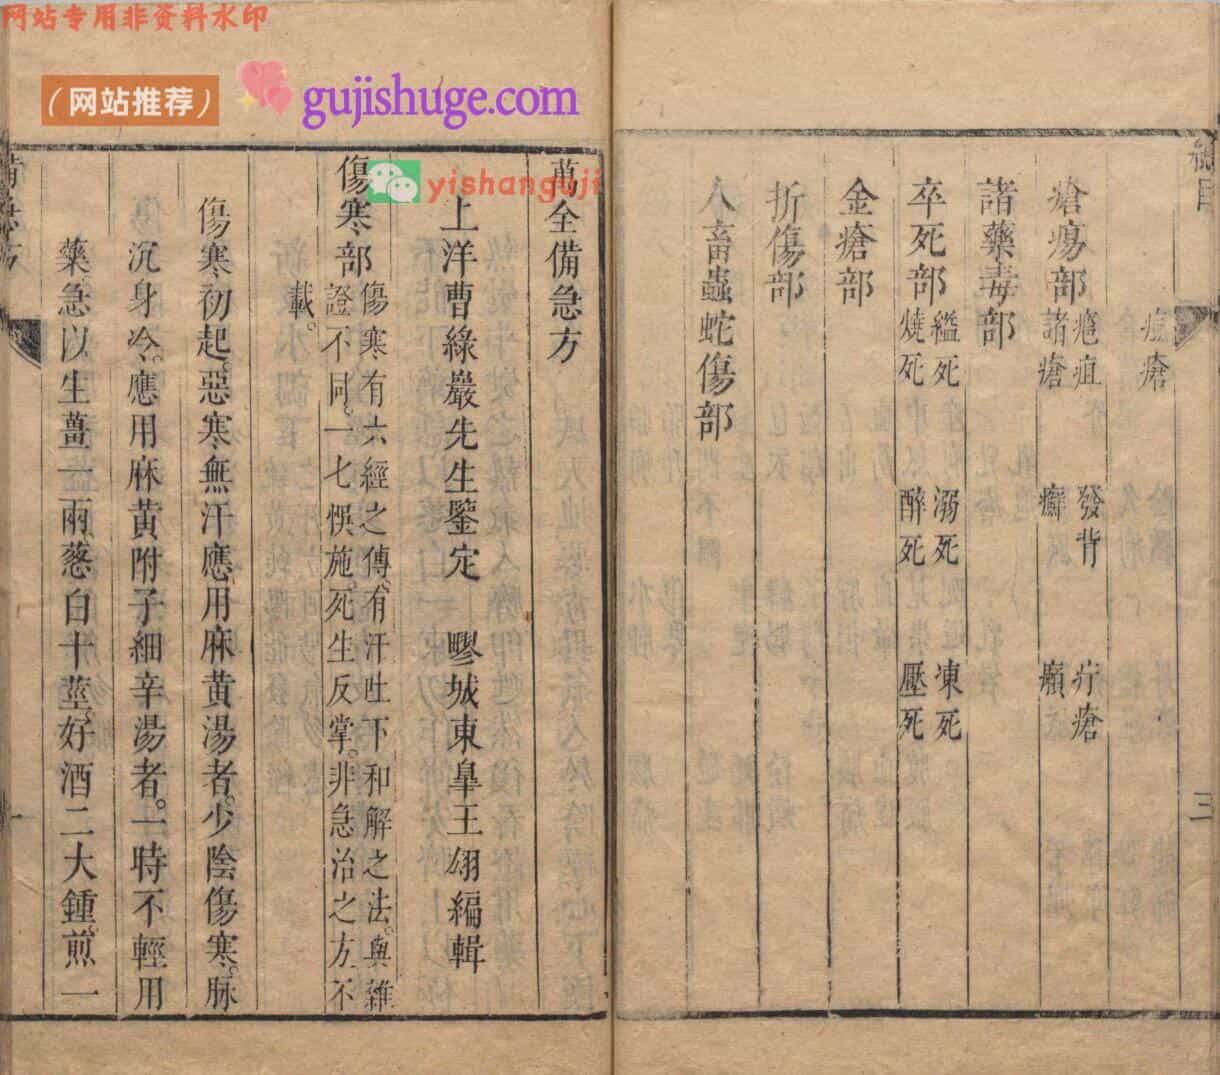 网站专用非资料水印
（网站推荐）
gujishuge.com
yishanguji
總目
三
痘瘡
瘡瘍部
疽疽 發背 疔瘡
諸瘡 癬 癩
諸藥毒部
卒死部
縊死 溺死 凍死
燒死 醉死 壓死
金瘡部
折傷部
人畜蟲蛇傷部
萬全備急方
上洋曹綠巖先生鑒定 疁城東臯王翃編輯
傷寒部
傷寒有六經之傳。有汗吐下和解之法。與雜
證不同。一七悞施。死生反掌。非急治之方。不
載。
傷寒初起。惡寒無汗。應用麻黃湯者。少陰傷寒。脉
沉身冷。應用麻黃附子細辛湯者。一時不輕用
藥。急以生薑一兩。葱白十莖。好酒二大鍾。煎一
備急方
一